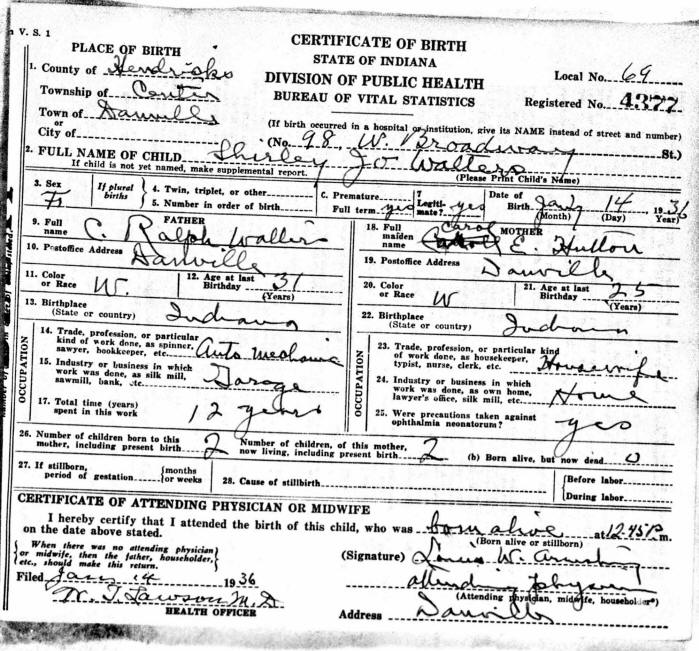 V. S. 1
PLACE OF BIRTH
CERTIFICATE OF BIRTH
STATE OF INDIANA
DIVISION OF PUBLIC HEALTH
BUREAU OF VITAL STATISTICS
1. County of Hendricks
Township of Center
Town of Danville
or
City of
Local No. 69
Registered No. 4377
(If birth occurred in a hospital or institution, give its NAME instead of street and number)
(No. 98, W. Broadway St.)
2. FULL NAME OF CHILD Shirley Jo Walters
If child is not yet named, make supplemental report. (Please Print Child's Name)
3. Sex F. If plural births 4. Twin, triplet, or other
5. Number in order of birth
6. Premature Full term yes 7 Legitimate? yes Date of Birth Jan 14 1936
(Month) (Day) Year)
FATHER
9. Full name C. Ralph Walters
10. Postoffice Address Danville
11. Color or Race W. 12. Age at last Birthday 31
(Years)
13. Birthplace (State or country) Indiana
OCCUPATION
14. Trade, profession, or particular kind of work done, as spinner, sawyer, bookkeeper, etc. Auto mechanic
15. Industry or business in which work was done, as silk mill, sawmill, bank, etc. Garage
17. Total time (years) spent in this work 12 years
MOTHER
18. Full maiden name Carol E. Hutton
19. Postoffice Address Danville
20. Color or Race W 21. Age at last Birthday 25
(Years)
22. Birthplace (State or country) Indiana
OCCUPATION
23. Trade, profession, or particular kind of work done, as housekeeper, typist, nurse, clerk, etc. Housewife
24. Industry or business in which work was done, as own home, lawyer's office, silk mill, etc. Home
25. Were precautions taken against ophthalmia neonatorum? yes
26. Number of children born to this mother, including present birth 2 Number of children, of this mother, now living, including present birth 2 (b) Born alive, but now dead 0
27. If stillborn, period of gestation (months or weeks 28. Cause of stillbirth Before labor
During labor
CERTIFICATE OF ATTENDING PHYSICIAN OR MIDWIFE
I hereby certify that I attended the birth of this child, who was born alive at 12:45 P. m.
on the date above stated. (Born alive or stillborn)
When there was no attending physician or midwife, then the father, householder, etc., should make this return.
(Signature) Louis W. Armstrong
attending physician
(Attending physician, midwife, householder*)
Filed Jan 14 1936
W. T. Lawson M.D.
HEALTH OFFICER
Address Danville